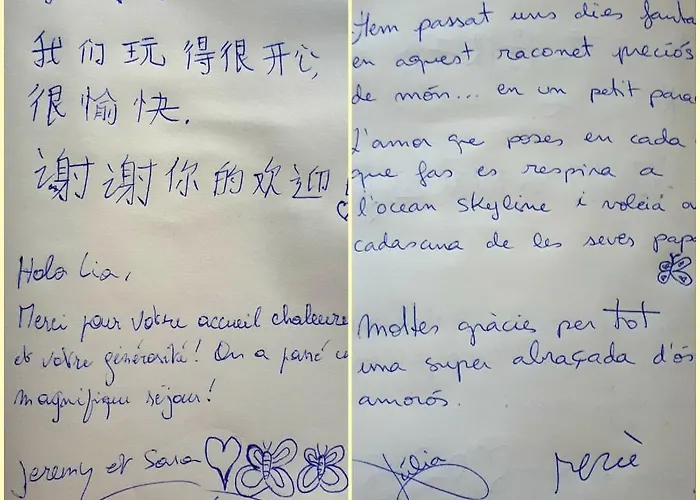 我们玩得很开心,
很愉快.
谢谢你的欢迎!
Hola Lia,
Merci pour votre accueil chaleure
et votre générosité! On a passé u
magnifique séjour!
Jeremy et Sara
Hem passat uns dies fanta
en aquest raconet preciós
de món... en un petit para
L'amor que poses en cada
que fas es respira a
l'ocean skyline i voleiá a
cadascuna de les seves pap
Moltes gràcies per tot
una super abraçada d'ós
amorós.
Júlia
Mercè